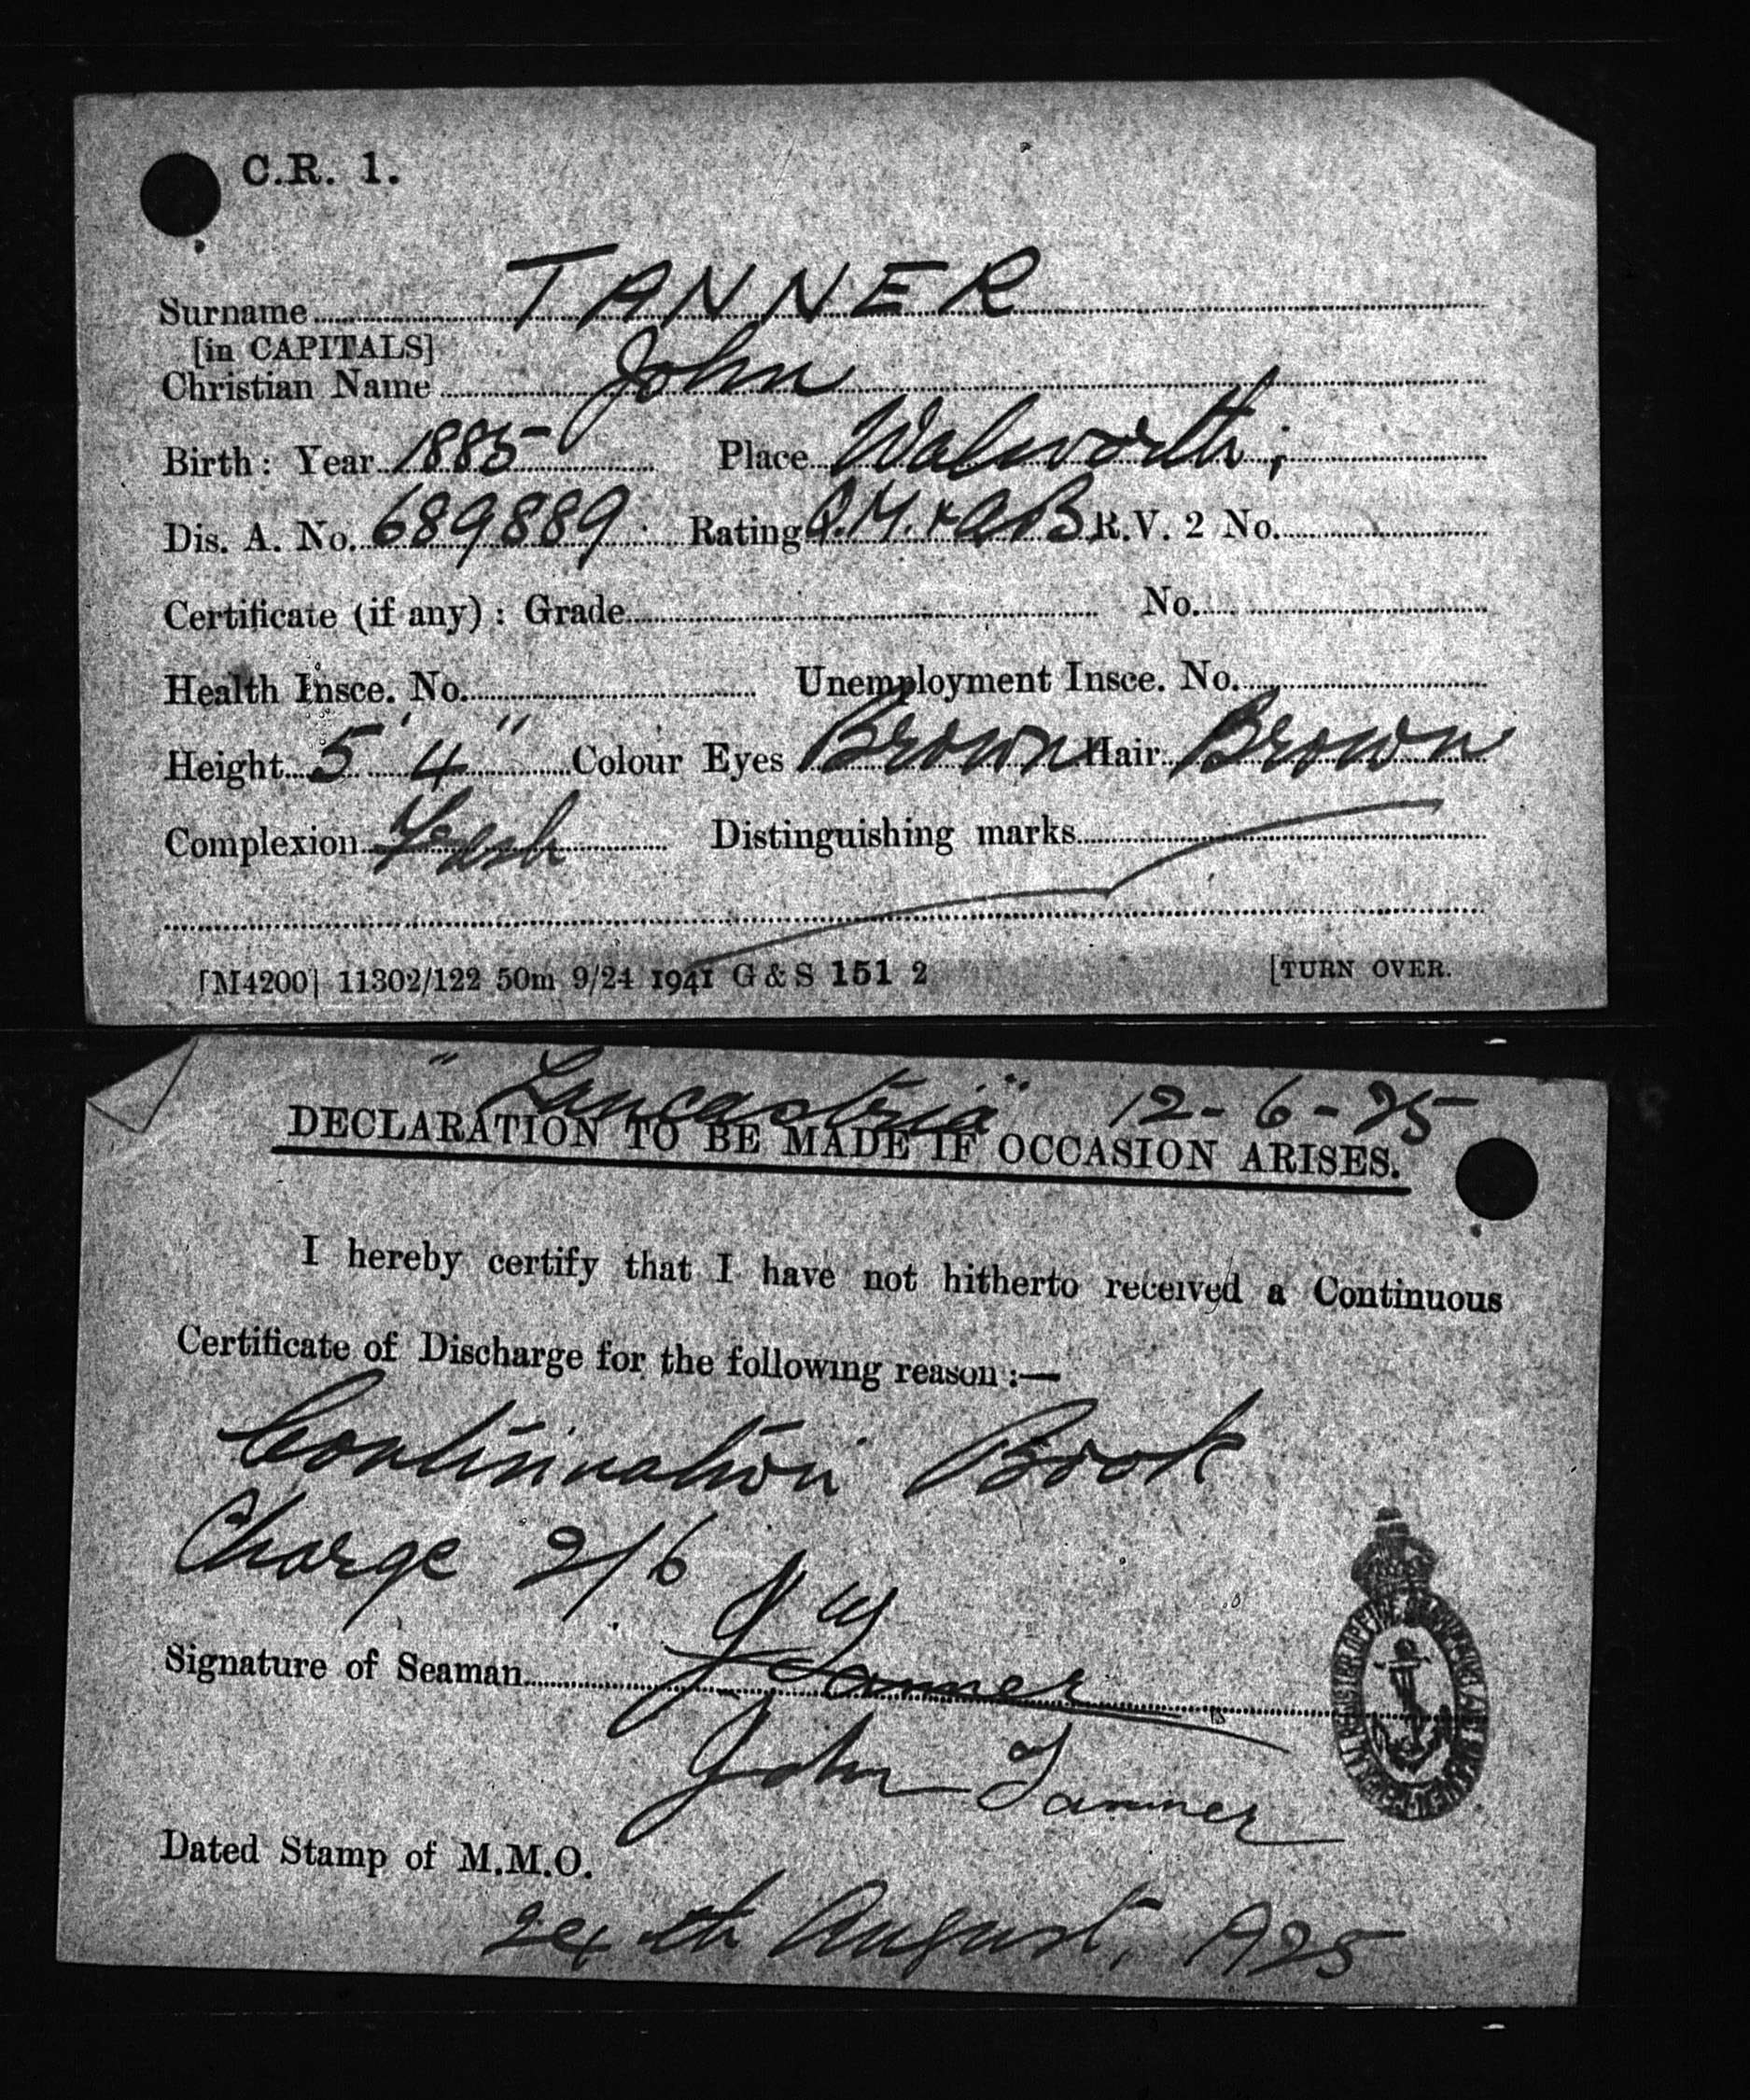 C.R. 1.
Surname TANNER
[in CAPITALS]
Christian Name John
Birth: Year 1885 Place Walworth;
Dis. A. No. 689889 Rating Q.M. + AB R.V. 2 No.
Certificate (if any): Grade No.
Health Insce. No. Unemployment Insce. No.
Height 5' 4" Colour Eyes Brown Hair Brown
Complexion Fresh Distinguishing marks
[M4200] 11302/122 50m 9/24 1941 G & S 151 2 [TURN OVER.
"Lancastria" 12-6-25
DECLARATION TO BE MADE IF OCCASION ARISES.
I hereby certify that I have not hitherto received a Continuous
Certificate of Discharge for the following reason:—
Continuation Book
Charge 2/6
Signature of Seaman J Tanner
John Tanner
Dated Stamp of M.M.O.
August, 1925